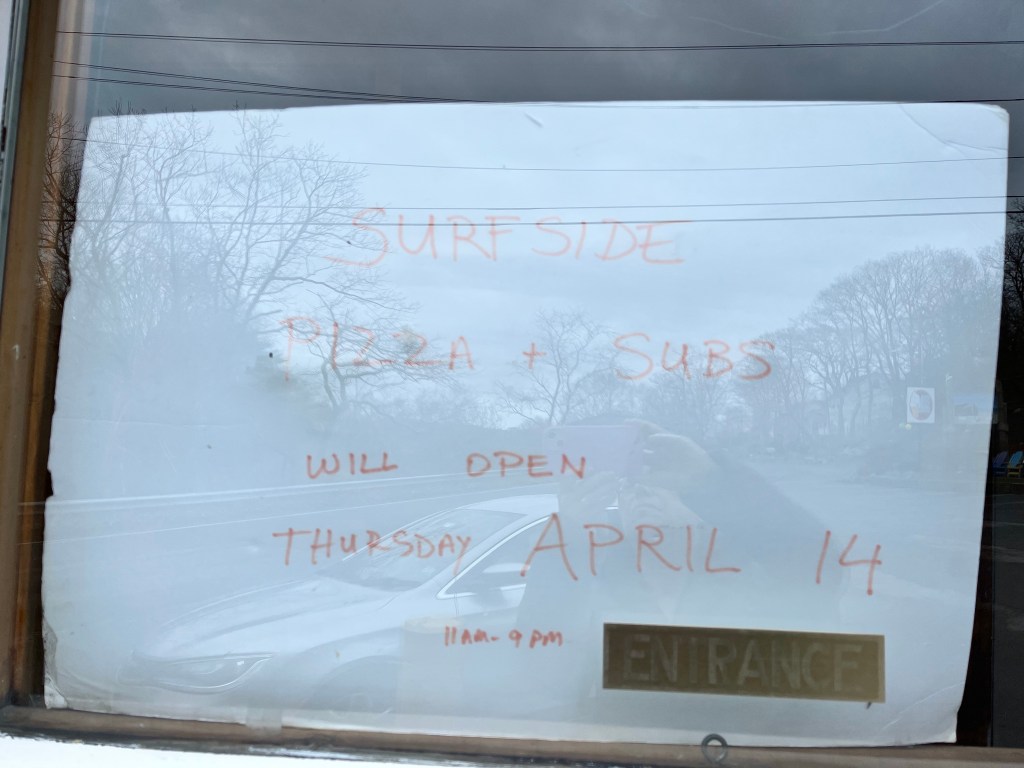 SURFSIDE
PIZZA + SUBS
WILL OPEN
THURSDAY APRIL 14
11AM - 9PM
ENTRANCE